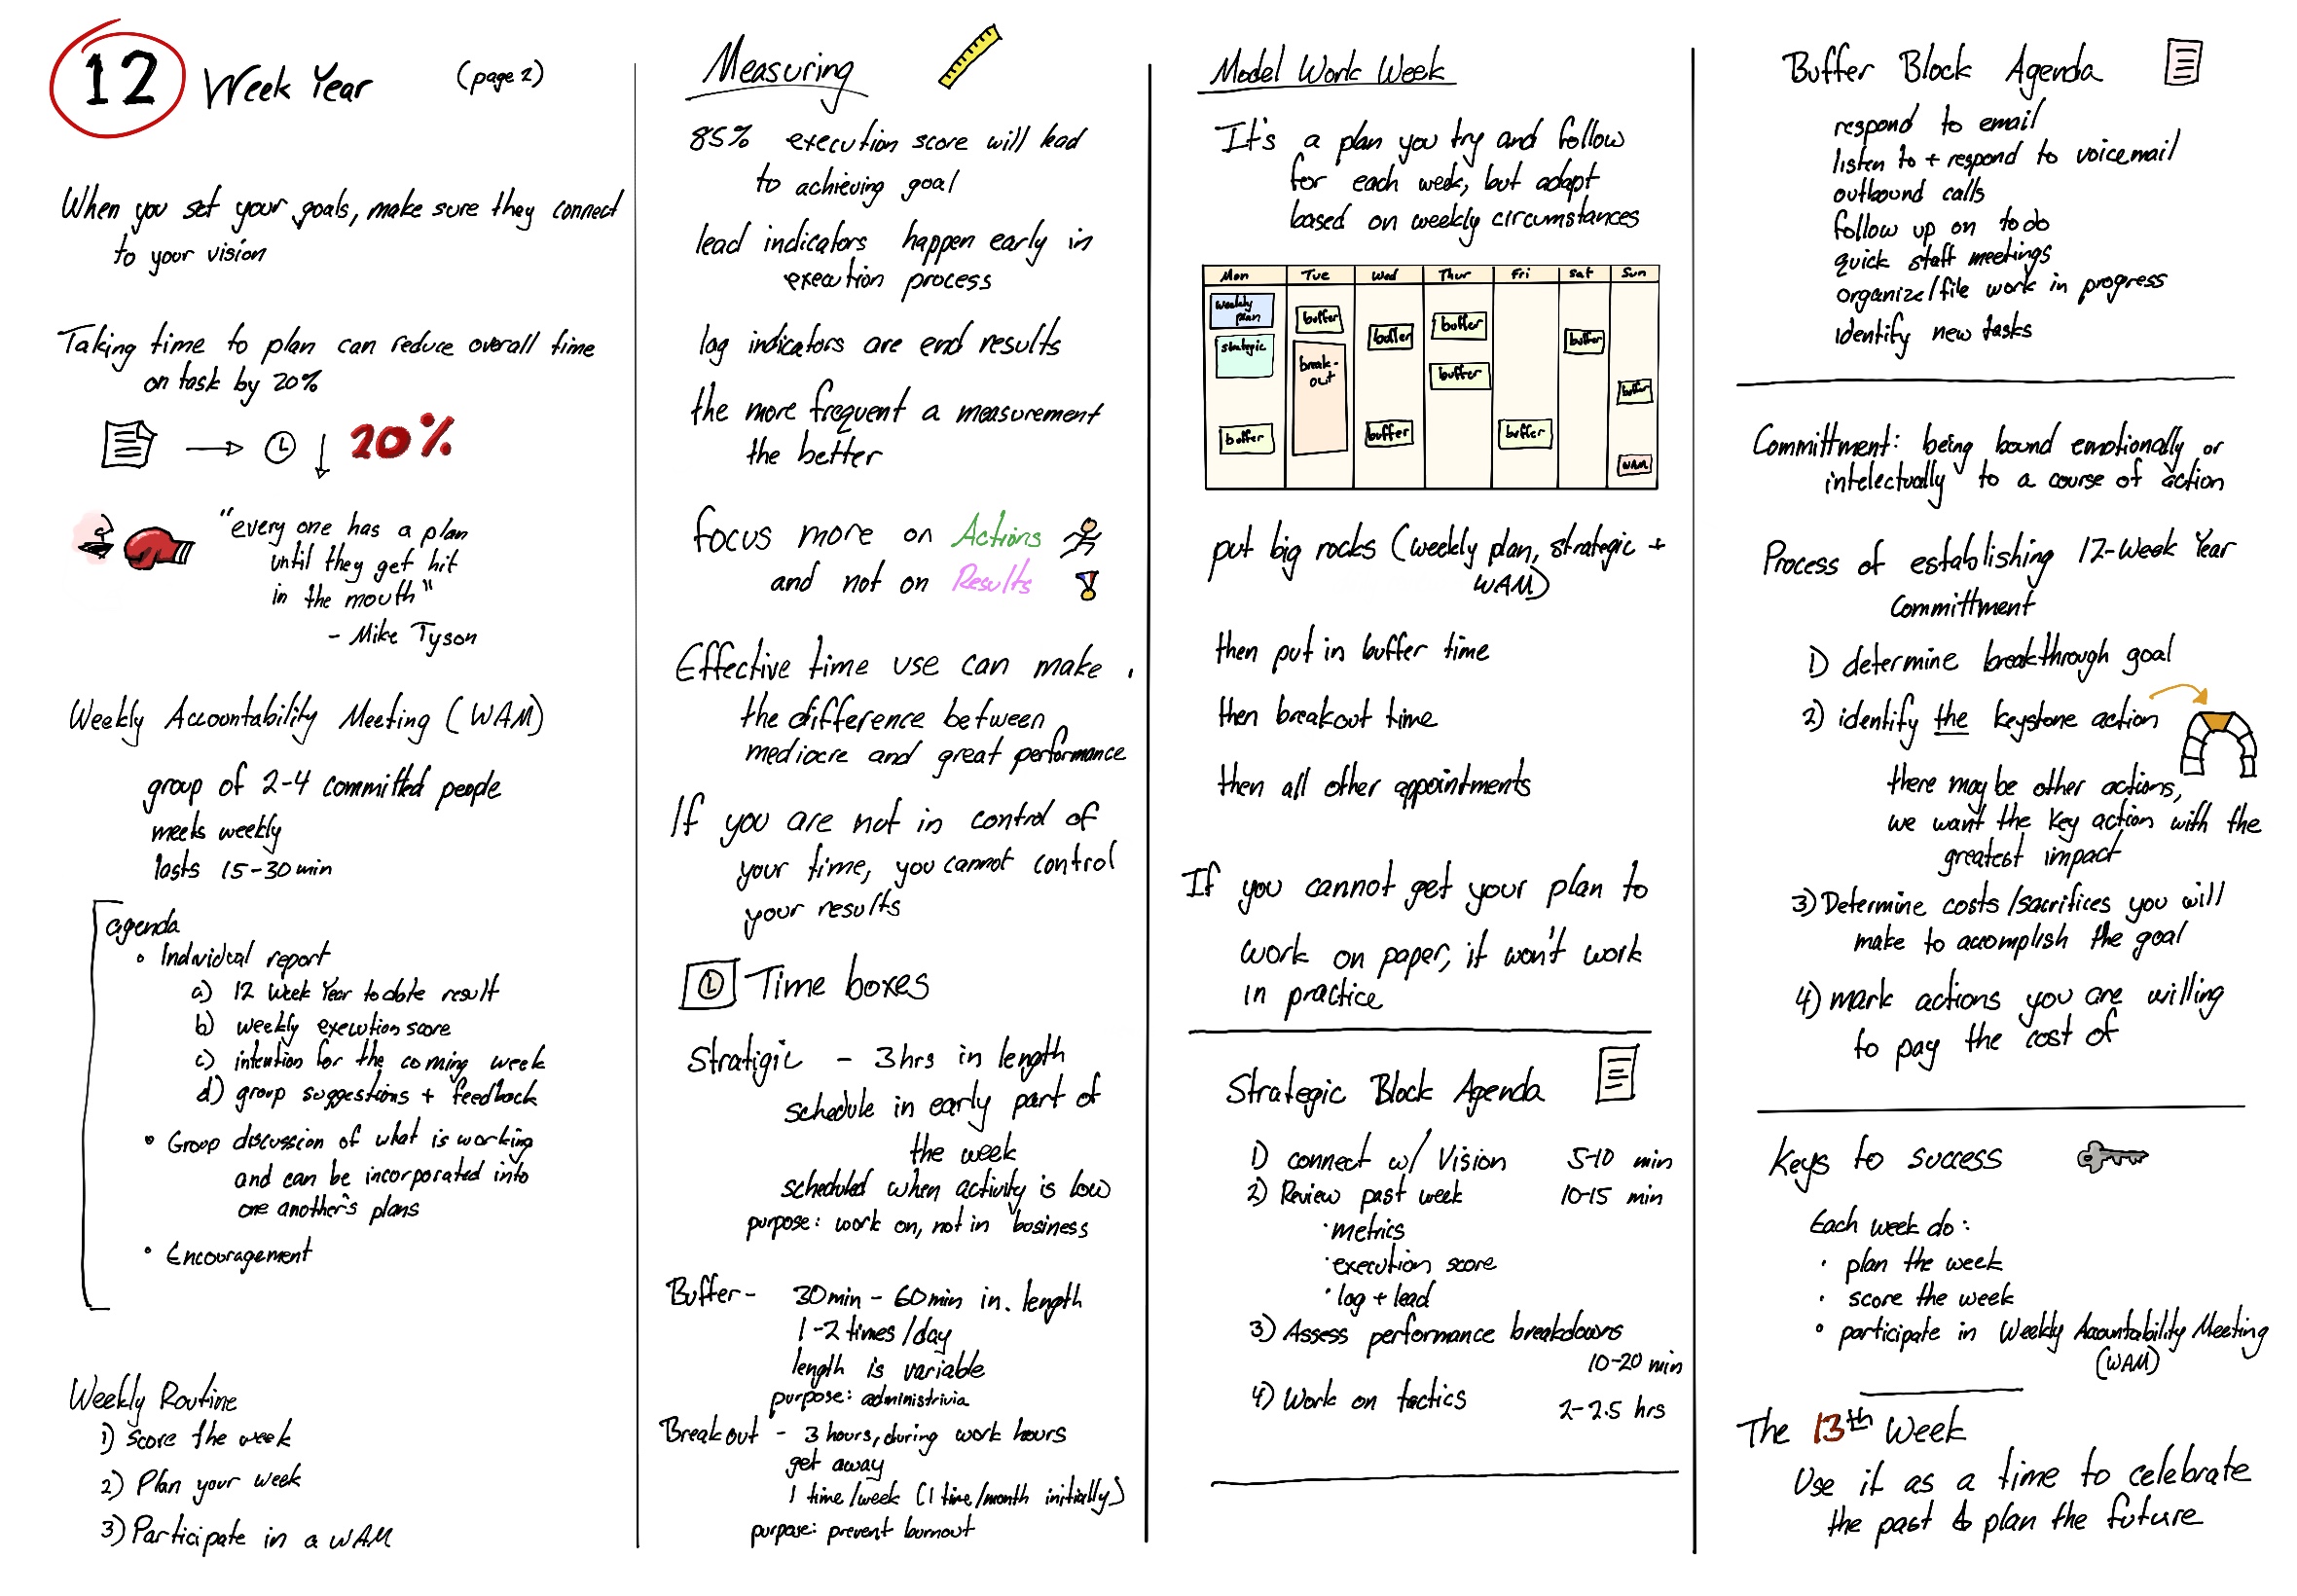 12 Week Year (page 2)
When you set your goals, make sure they connect
to your vision
Taking time to plan can reduce overall time
on task by 20%
20%
"every one has a plan
until they get hit
in the mouth"
- Mike Tyson
Weekly Accountability Meeting (WAM)
group of 2-4 committed people
meets weekly
lasts 15-30 min
agenda
• Individual report
a) 12 Week Year to date result
b) weekly execution score
c) intention for the coming week
d) group suggestions + feedback
• Group discussion of what is working
and can be incorporated into
one another's plans
• Encouragement
Weekly Routine
1) Score the week
2) Plan your week
3) Participate in a WAM
Measuring
85% execution score will lead
to achieving goal
lead indicators happen early in
execution process
lag indicators are end results
the more frequent a measurement
the better
focus more on Actions
and not on Results
Effective time use can make
the difference between
mediocre and great performance
If you are not in control of
your time, you cannot control
your results
Time boxes
Stratigic - 3hrs in length
schedule in early part of
the week
scheduled when activity is low
purpose: work on, not in business
Buffer - 30min - 60min in. length
1-2 times/day
length is variable
purpose: administrivia
Breakout - 3 hours, during work hours
get away
1 time/week (1 time/month initially)
purpose: prevent burnout
Model Work Week
It's a plan you try and follow
for each week, but adapt
based on weekly circumstances
Mon Tue Wed Thur Fri Sat Sun
weekly
plan
strategic
buffer
buffer
break-
out
buffer
buffer
buffer
buffer
buffer
buffer
buffer
WAM
put big rocks (weekly plan, strategic +
WAM)
then put in buffer time
then breakout time
then all other appointments
If you cannot get your plan to
work on paper, it won't work
in practice
Strategic Block Agenda
1) connect w/ Vision 5-10 min
2) Review past week 10-15 min
• metrics
• execution score
• lag + lead
3) Assess performance breakdowns
10-20 min
4) Work on tactics 2-2.5 hrs
Buffer Block Agenda
respond to email
listen to + respond to voicemail
outbound calls
follow up on to do
quick staff meetings
organize/file work in progress
identify new tasks
Committment: being bound emotionally or
intelectually to a course of action
Process of establishing 12-Week Year
Committment
1) determine breakthrough goal
2) identify the keystone action
there may be other actions,
we want the key action with the
greatest impact
3) Determine costs/sacrifices you will
make to accomplish the goal
4) mark actions you are willing
to pay the cost of
Keys to success
Each week do:
• plan the week
• score the week
• participate in Weekly Accountability Meeting
(WAM)
The 13th Week
Use it as a time to celebrate
the past & plan the future